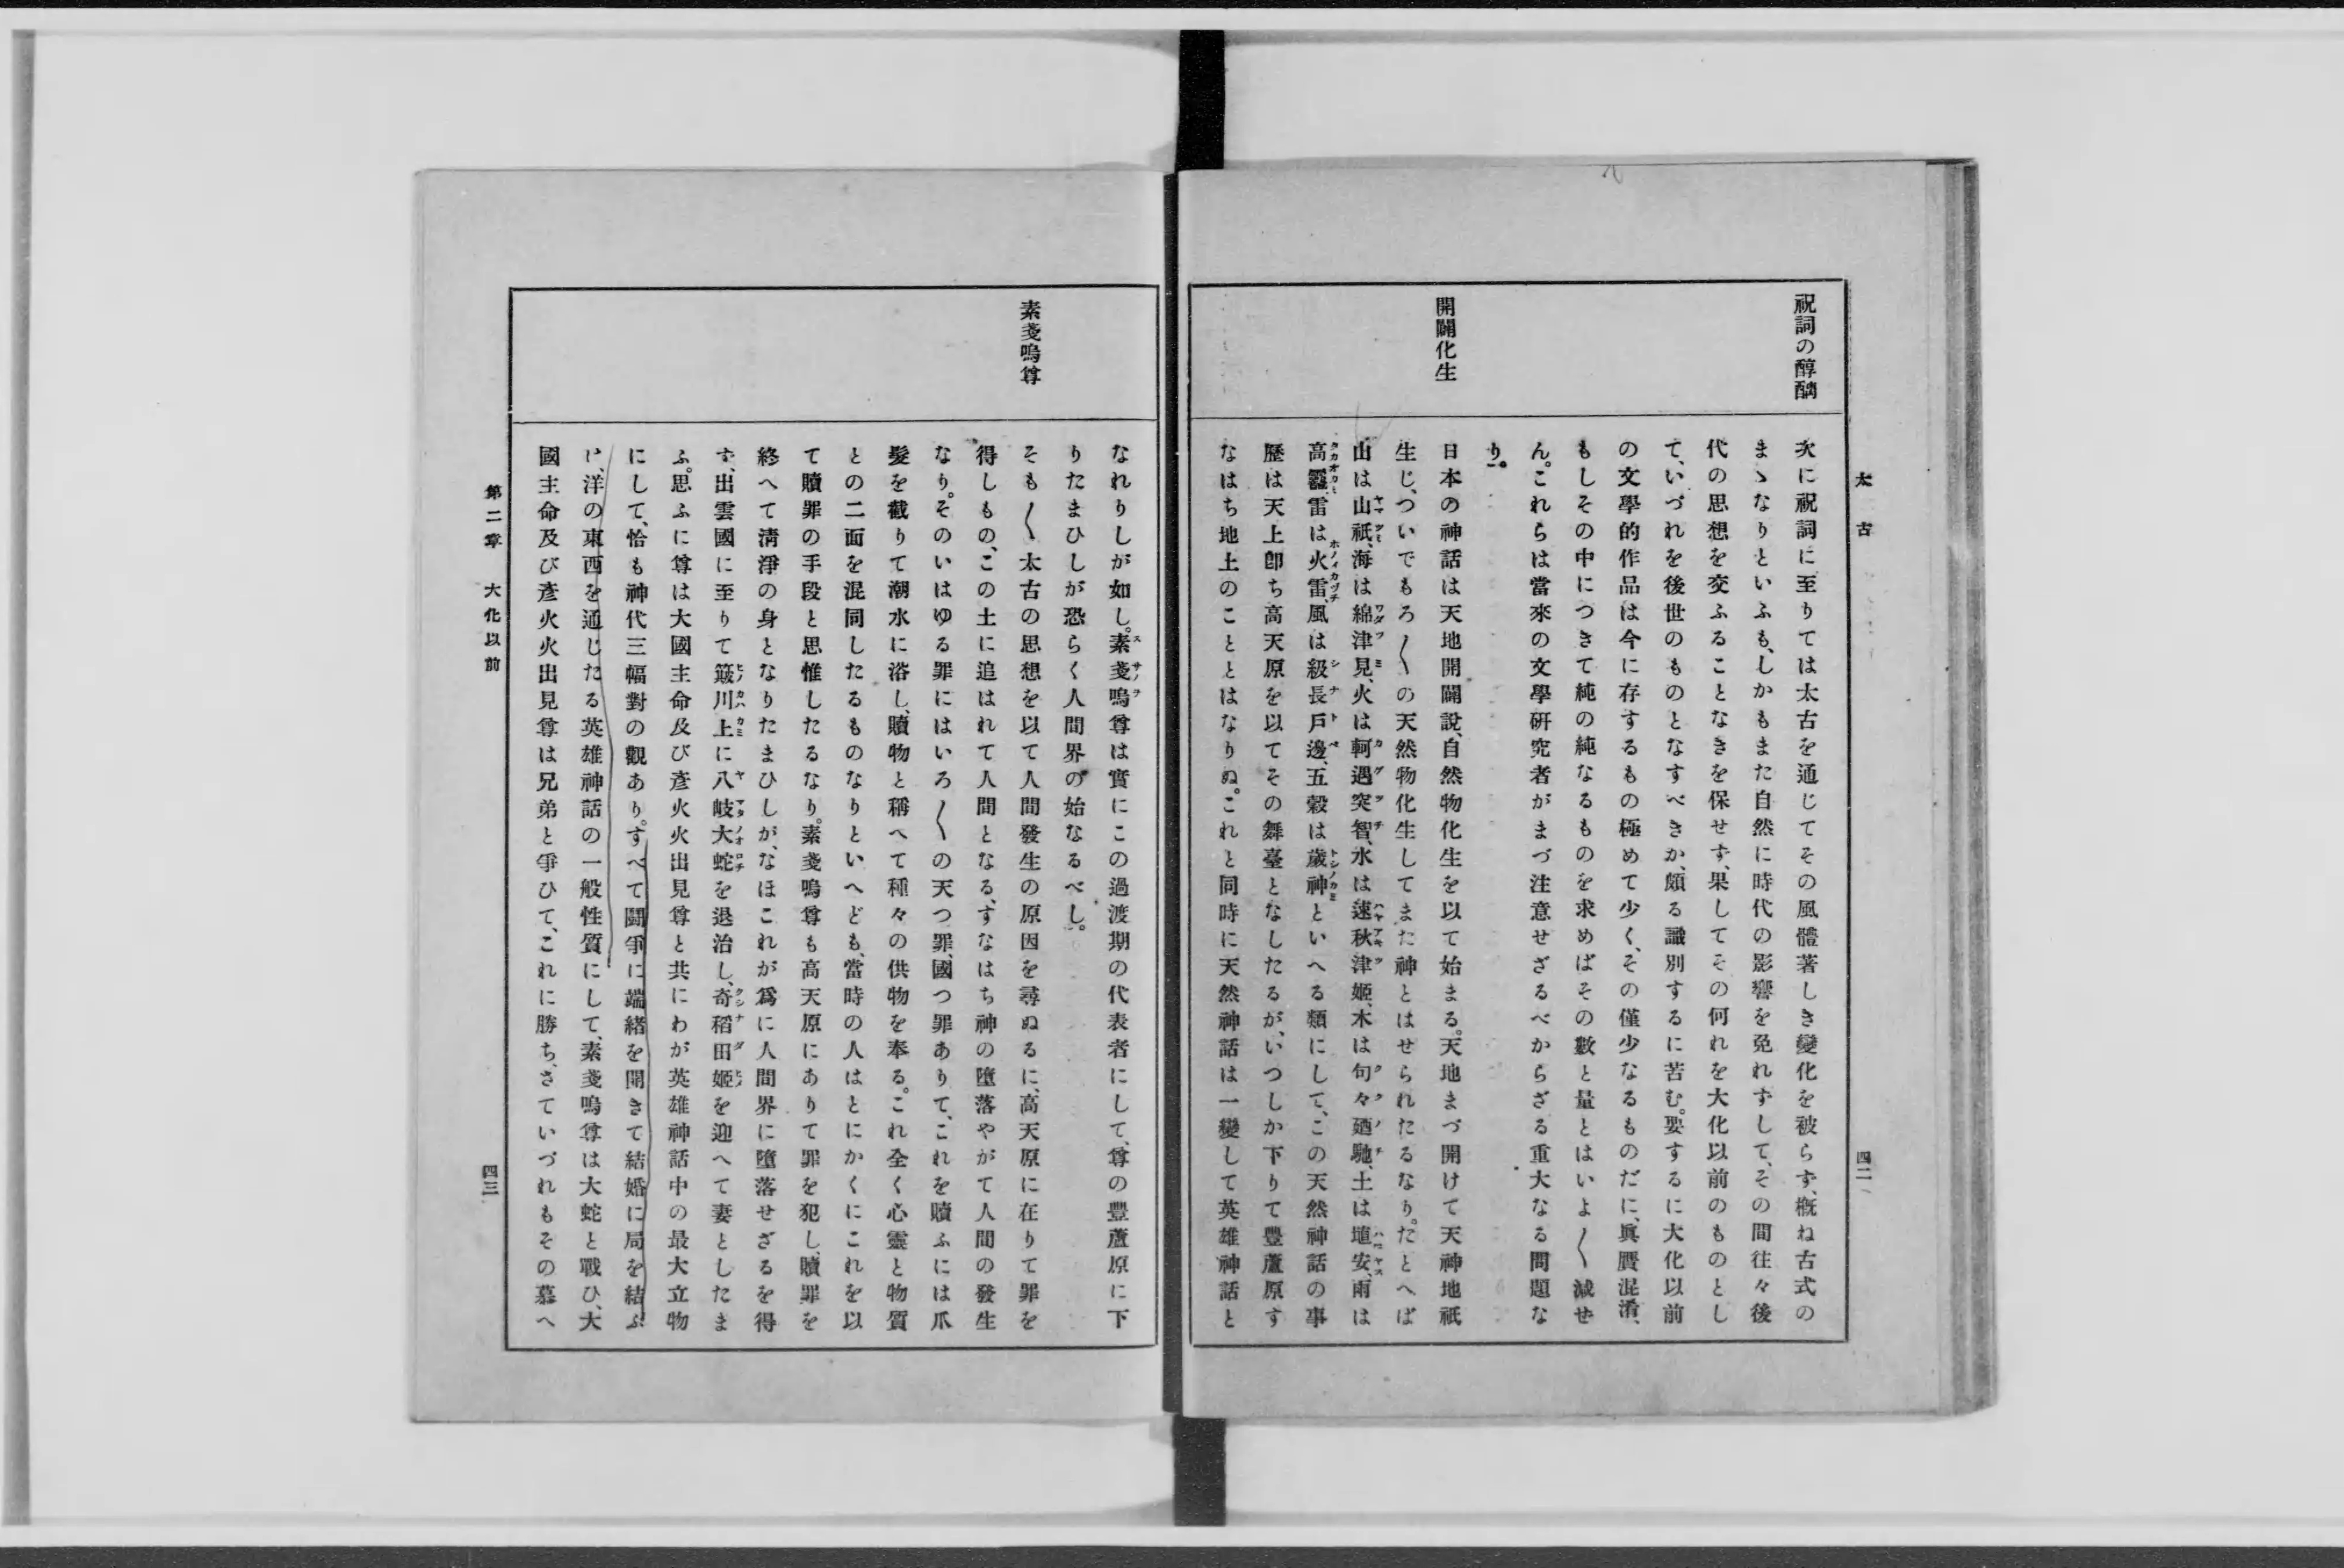 太古
四二
祝詞の醇醨
次に祝詞に至りては太古を通じてその風體著しき變化を被らず、槪ね古式の
まゝなりといふも、しかもまた自然に時代の影響を免れずして、その間往々後
代の思想を交ふることなきを保せず、果してその何れを大化以前のものとし
て、いづれを後世のものとなすべきか、頗る識別するに苦む。要するに大化以前
の文學的作品は今に存するもの極めて少く、その僅少なるものだに、眞贋混淆、
もしその中につきて純の純なるものを求めばその數と量とはいよ〳〵減せ
ん。これらは當來の文學硏究者がまづ注意せざるべからざる重大なる問題な
り。
開闢化生
日本の神話は天地開闢說、自然物化生を以て始まる。天地まづ開けて天神地祇
生じ、ついでもろ〳〵の天然物化生してまた神とはせられたるなり。たとへば
山は山祇、海は綿津見、火は軻遇突智、水は速秋津姬、木は句々廼馳、土は埴安、雨は
高龗、雷は火雷、風は級長戸邊、五穀は歲神といへる類にして、この天然神話の事
歷は天上卽ち高天原を以てその舞臺となしたるが、いつしか下りて豐蘆原す
なはち地上のこととはなりぬ。これと同時に天然神話は一變して英雄神話と
なれりしが如し。素戔嗚尊は實にこの過渡期の代表者にして、尊の豐蘆原に下
りたまひしが恐らく人間界の始なるべし。
素戔嗚尊
そも〳〵太古の思想を以て人間發生の原因を尋ぬるに、高天原に在りて罪を
得しもの、この土に追はれて人間となる、すなはち神の墮落やがて人間の發生
なり。そのいはゆる罪にはいろ〳〵の天つ罪、國つ罪ありて、これを贖ふには爪
髮を截りて潮水に浴し、贖物と稱へて種々の供物を奉る。これ全く心靈と物質
との二面を混同したるものなりといへども、當時の人はとにかくにこれを以
て贖罪の手段と思惟したるなり。素戔嗚尊も高天原にありて罪を犯し、贖罪を
終へて淸淨の身となりたまひしが、なほこれが爲に人間界に墮落せざるを得
ず、出雲國に至りて簸川上に八岐大蛇を退治し、奇稻田姬を迎へて妻としたま
ふ。思ふに尊は大國主命及び彥火火出見尊と共にわが英雄神話中の最大立物
にして、恰も神代三幅對の觀あり。すべて鬪爭に端緒を開きて結婚に局を結ぶ
は、洋の東西を通じたる英雄神話の一般性質にして、素戔嗚尊は大蛇と戰ひ、大
國主命及び彥火火出見尊は兄弟と爭ひて、これに勝ち、さていづれもその慕へ
第二章 大化以前
四三